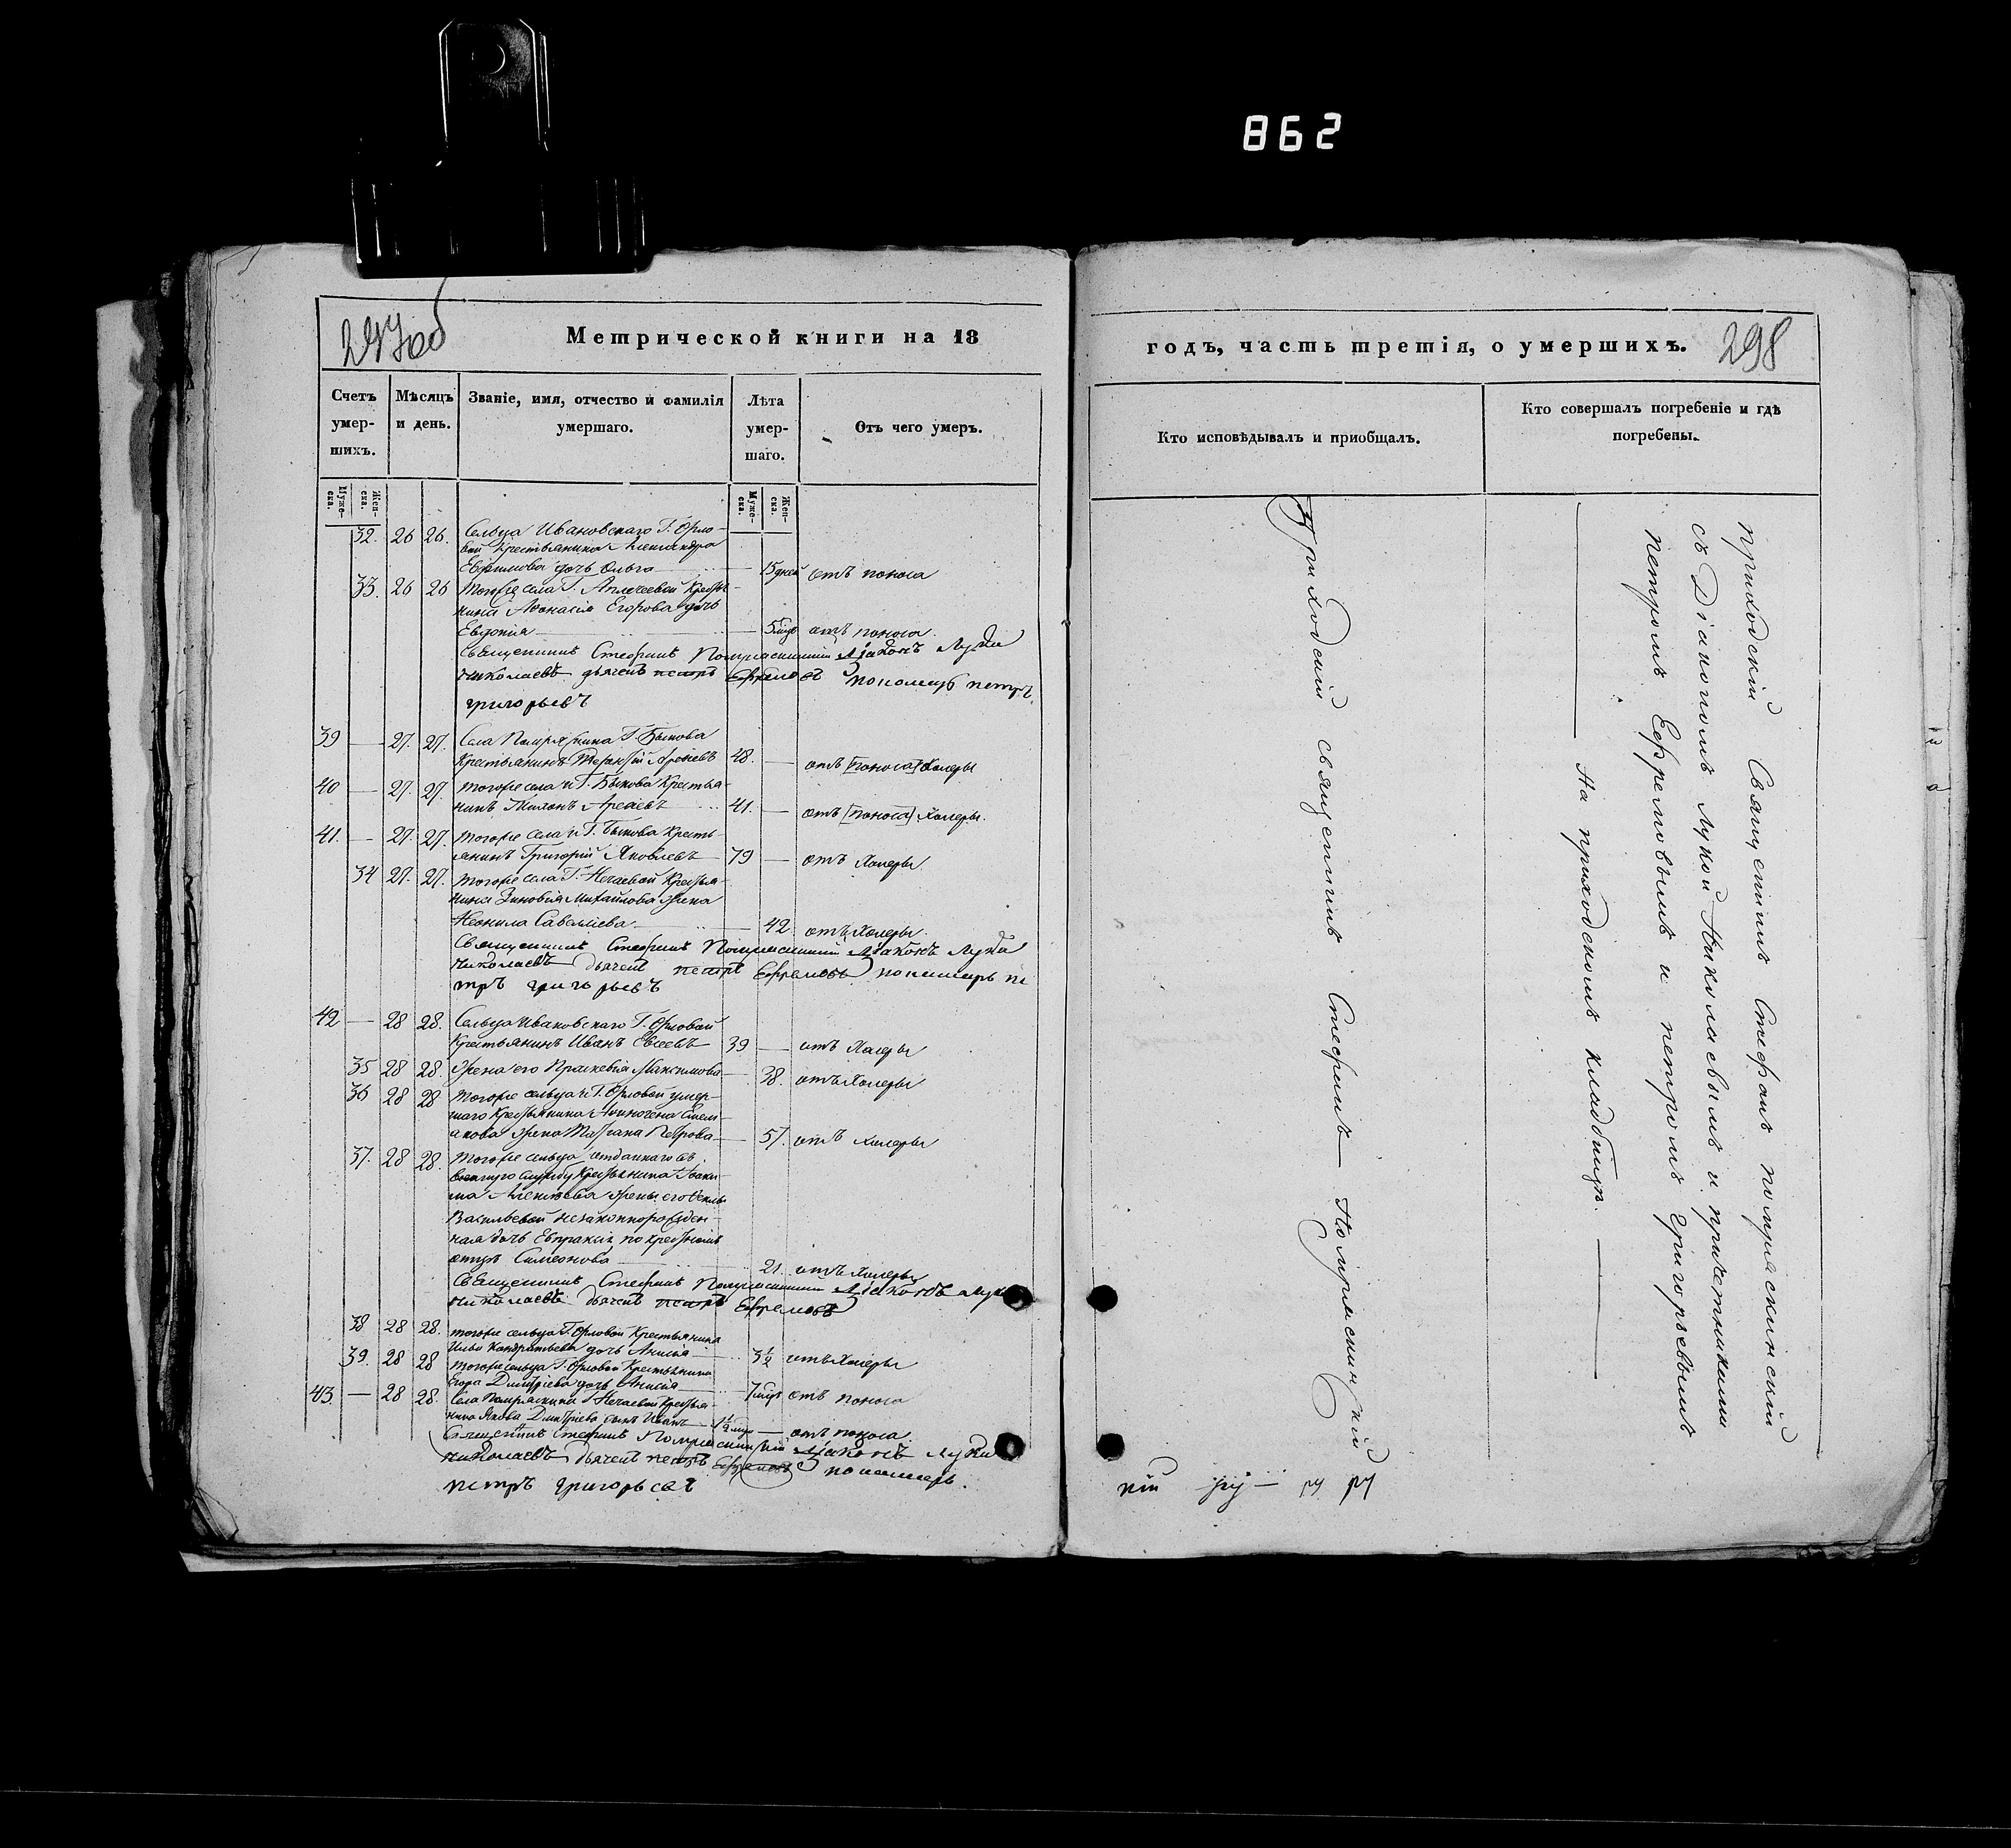 862
297об
Метрической книги на 18
Счетъ умер-шихъ.
Мѣсяцъ и день.
Званіе, имя, отчество и фамилія умершаго.
Лѣта умер-шаго.
Отъ чего умеръ.
Муже-ска.
Жен-ска.
Муже-ска.
Жен-ска.
32. 26 26. Сельца Ивановскаго Г. Орло-
вой Крестьянина Александра
Ефимова дочь Ольга — 15 дней отъ поноса
33. 26 26 Тогоже села Г. Крестья-
нина Афонасія Егорова дочь
Евдокия — 5 отъ поноса.
Священникъ Стефанъ Помряскинскій Діаконъ Лука
Николаевъ дьячекъ петръ Ефремовъ пономарь петръ
григорьевъ
39 — 27. 27. Села Помряскина Г. Быкова
Крестьянинъ 48. — отъ [поноса] Холеры
40 — 27. 27. тогоже села и Г. Быкова Крестья-
нинъ 41. — отъ [поноса] Холеры.
41. — 27. 27. тогоже села и Г. Быкова Кресть-
янинъ Григорій Яковлевъ 79 — отъ Холеры
34 27. 27. тогоже села Г. Нечаевой Крестья-
нина Зиновія Михайлова жена
Неонила Савельева — 42. отъ Холеры.
Священникъ Стефанъ Помряскинскій Діаконъ Лука
Николаевъ Дьячекъ петръ Ефремовъ пономарь пе
тръ григорьевъ
42 — 28 28. Сельца Ивановскаго Г. Орловой
Крестьянинъ Иванъ Евсеевъ 39 — отъ Холеры
35 28 28. Жена его Праскевія Максимова — 38. отъ Холеры
36 28 28 тогоже сельца и Г. Орловой умер-
шаго Крестьянина Емель-
янова жена Татіана Петрова — 57. отъ Холеры
37. 28 28. тогоже сельца отданнаго въ
военную службу Крестьянина
Алексеева жены его
Васильевой незаконнорожден-
ная дочь Евпраксія по крестномъ
отцѣ Симеонова 21. отъ Холеры
Священникъ Стефанъ Помряскинскій Діаконъ Лука
Николаевъ дьячекъ петръ Ефремовъ
38 28 28. тогоже сельца Г. Орловой Крестьянина
Ильи Кондратьева дочь Анисія — 3½ отъ Холеры
39. 28 28 тогоже сельца Г. Орловой Крестьянина
Егора Дмитріева дочь Анисія — 7 отъ поноса
43. — 28 28. Села Помряскина Г. Нечаевой Крестья-
нина Якова Дмитріева сынъ Иванъ 1½ — отъ поноса.
Священникъ Стефанъ Помряскинскій Діаконъ Лука
Николаевъ Дьячекъ петръ Ефремовъ пономарь
петръ григорьевъ
годъ, часть третія, о умершихъ.
298
Кто исповѣдывалъ и пріобщалъ.
Кто совершалъ погребеніе и гдѣ погребены.
Приходскій священникъ Стефанъ Помряскинскій
приходскій Священникъ Стефанъ помряскинскій
съ Діакономъ Лукой Николаевымъ и причетниками
петромъ Ефремовымъ и петромъ григорьевымъ
На приходскомъ кладбищѣ.